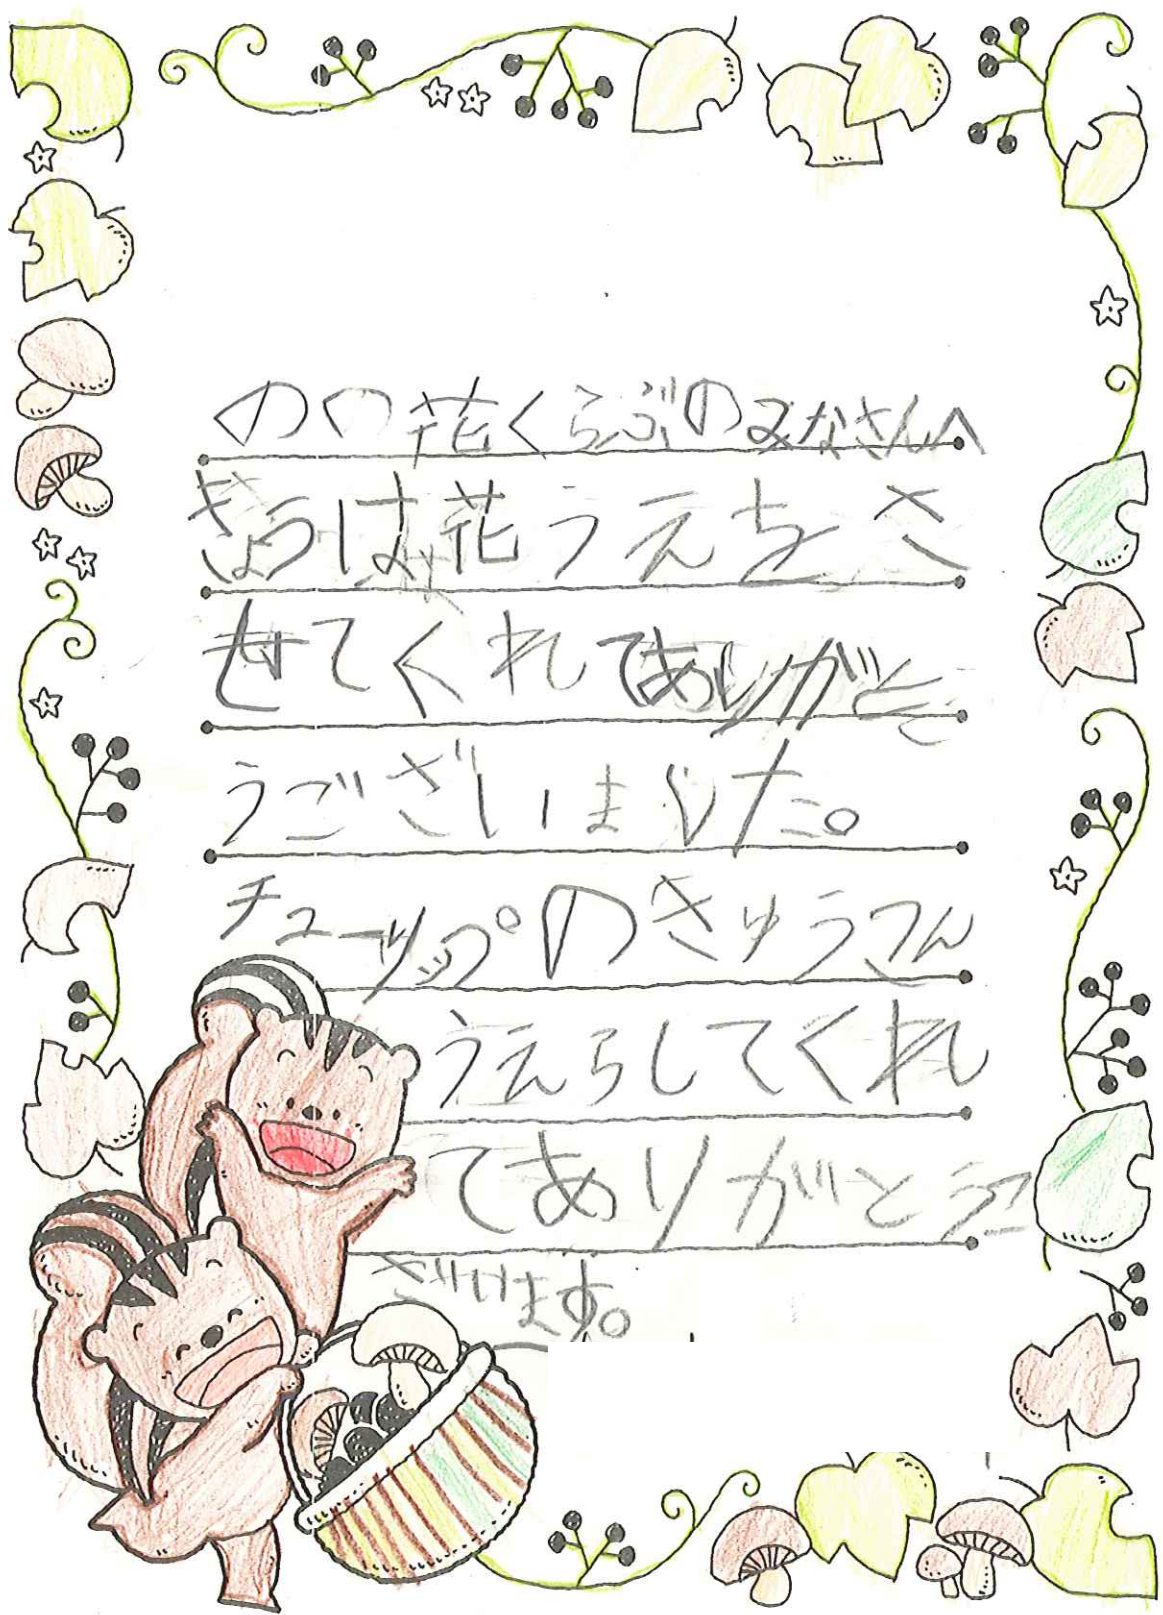 のの花くらぶのみなさんへ
きょうは花うえをさ
せてくれてありがと
うございました。
チューリップのきゅうこん
うえらしてくれ
てありがとうご
ざいます。